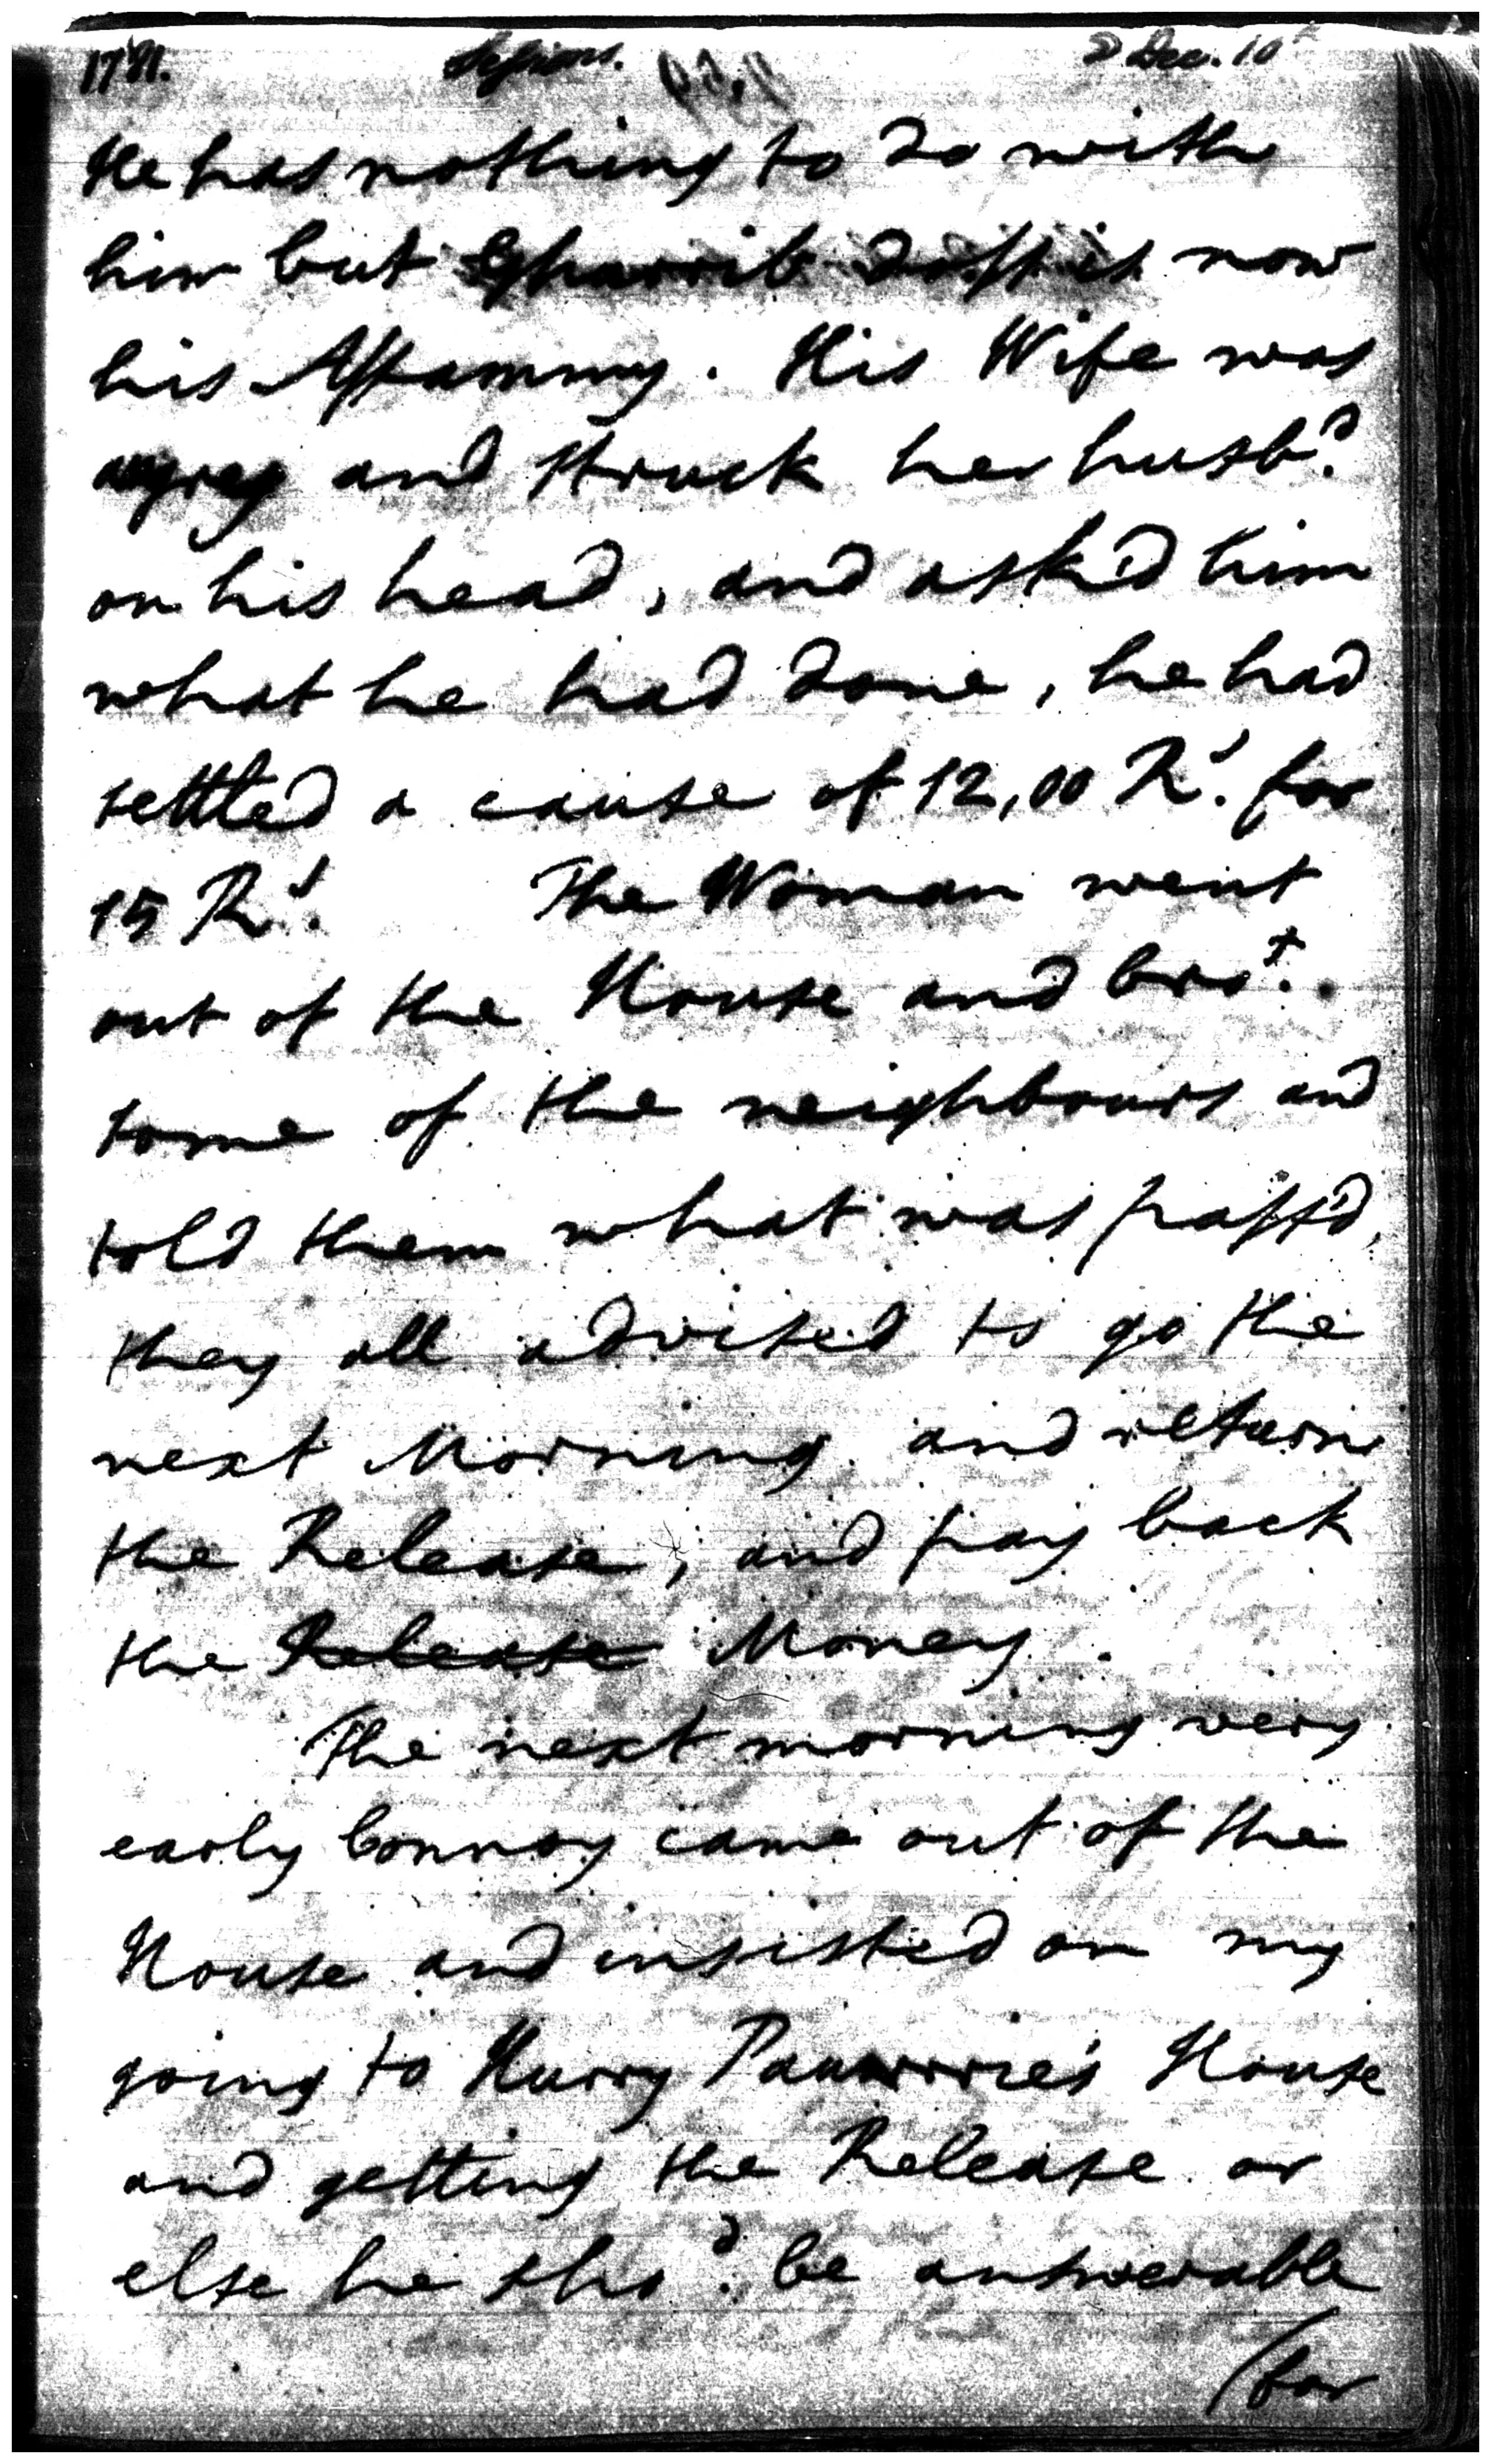 Sessions. Dec. 10th
He has nothing to do with
him but Gharrib doss is now
his Assammy. His Wife was
angrey and struck her husbd.
on his head, and ask'd him
what he had done, he had
settled a cause of 12,00 Rs. for
15 Rs. The Woman went
out of the House and brot.
some of the neighbours and
told them what was pass'd,
they all advised to go the
next Morning and return
the Release, and pay back
the Release Money.
The next morning very
early Connoy came out of the
House and insisted on my
going to Hurry House
and getting the Release or
else he shod. be answerable
/for